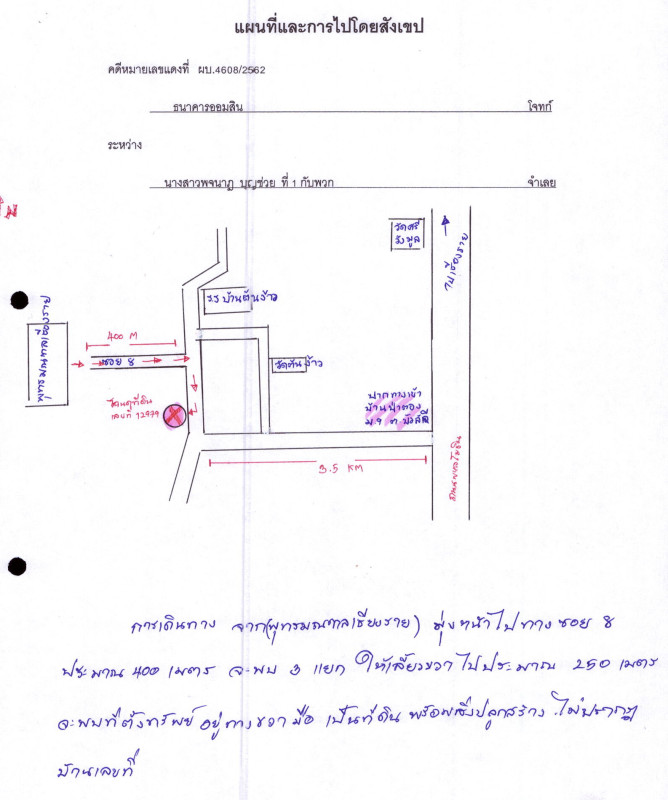 แผนที่และการไปโดยสังเขป
คดีหมายเลขแดงที่ ผบ.4608/2562
ธนาคารออมสิน โจทก์
ระหว่าง
นางสาวพจนาฏ บุญช่วย ที่ 1 กับพวก จำเลย
วัดศรี
วังมูล
ไปเชียงราย
ร.ร บ้านต้นง้าว
พุทธมณฑลเชียงราย
400 M
ซอย 8
วัดต้นง้าว
โฉนดที่ดิน
เลขที่ 12979
ปากทางเข้า
บ้านป่าตอง
ม.9 ต. บัวสลี
3.5 KM
ถนนพหลโยธิน
การเดินทาง จาก(พุทธมณฑลเชียงราย) มุ่งหน้าไปทางซอย 8
ประมาณ 400 เมตร จะพบ 3 แยก ให้เลี้ยวขวา ไปประมาณ 250 เมตร
จะพบที่ตั้งทรัพย์ อยู่ทางขวามือ เป็นที่ดิน พร้อมสิ่งปลูกสร้าง ไม่ปรากฏ
บ้านเลขที่